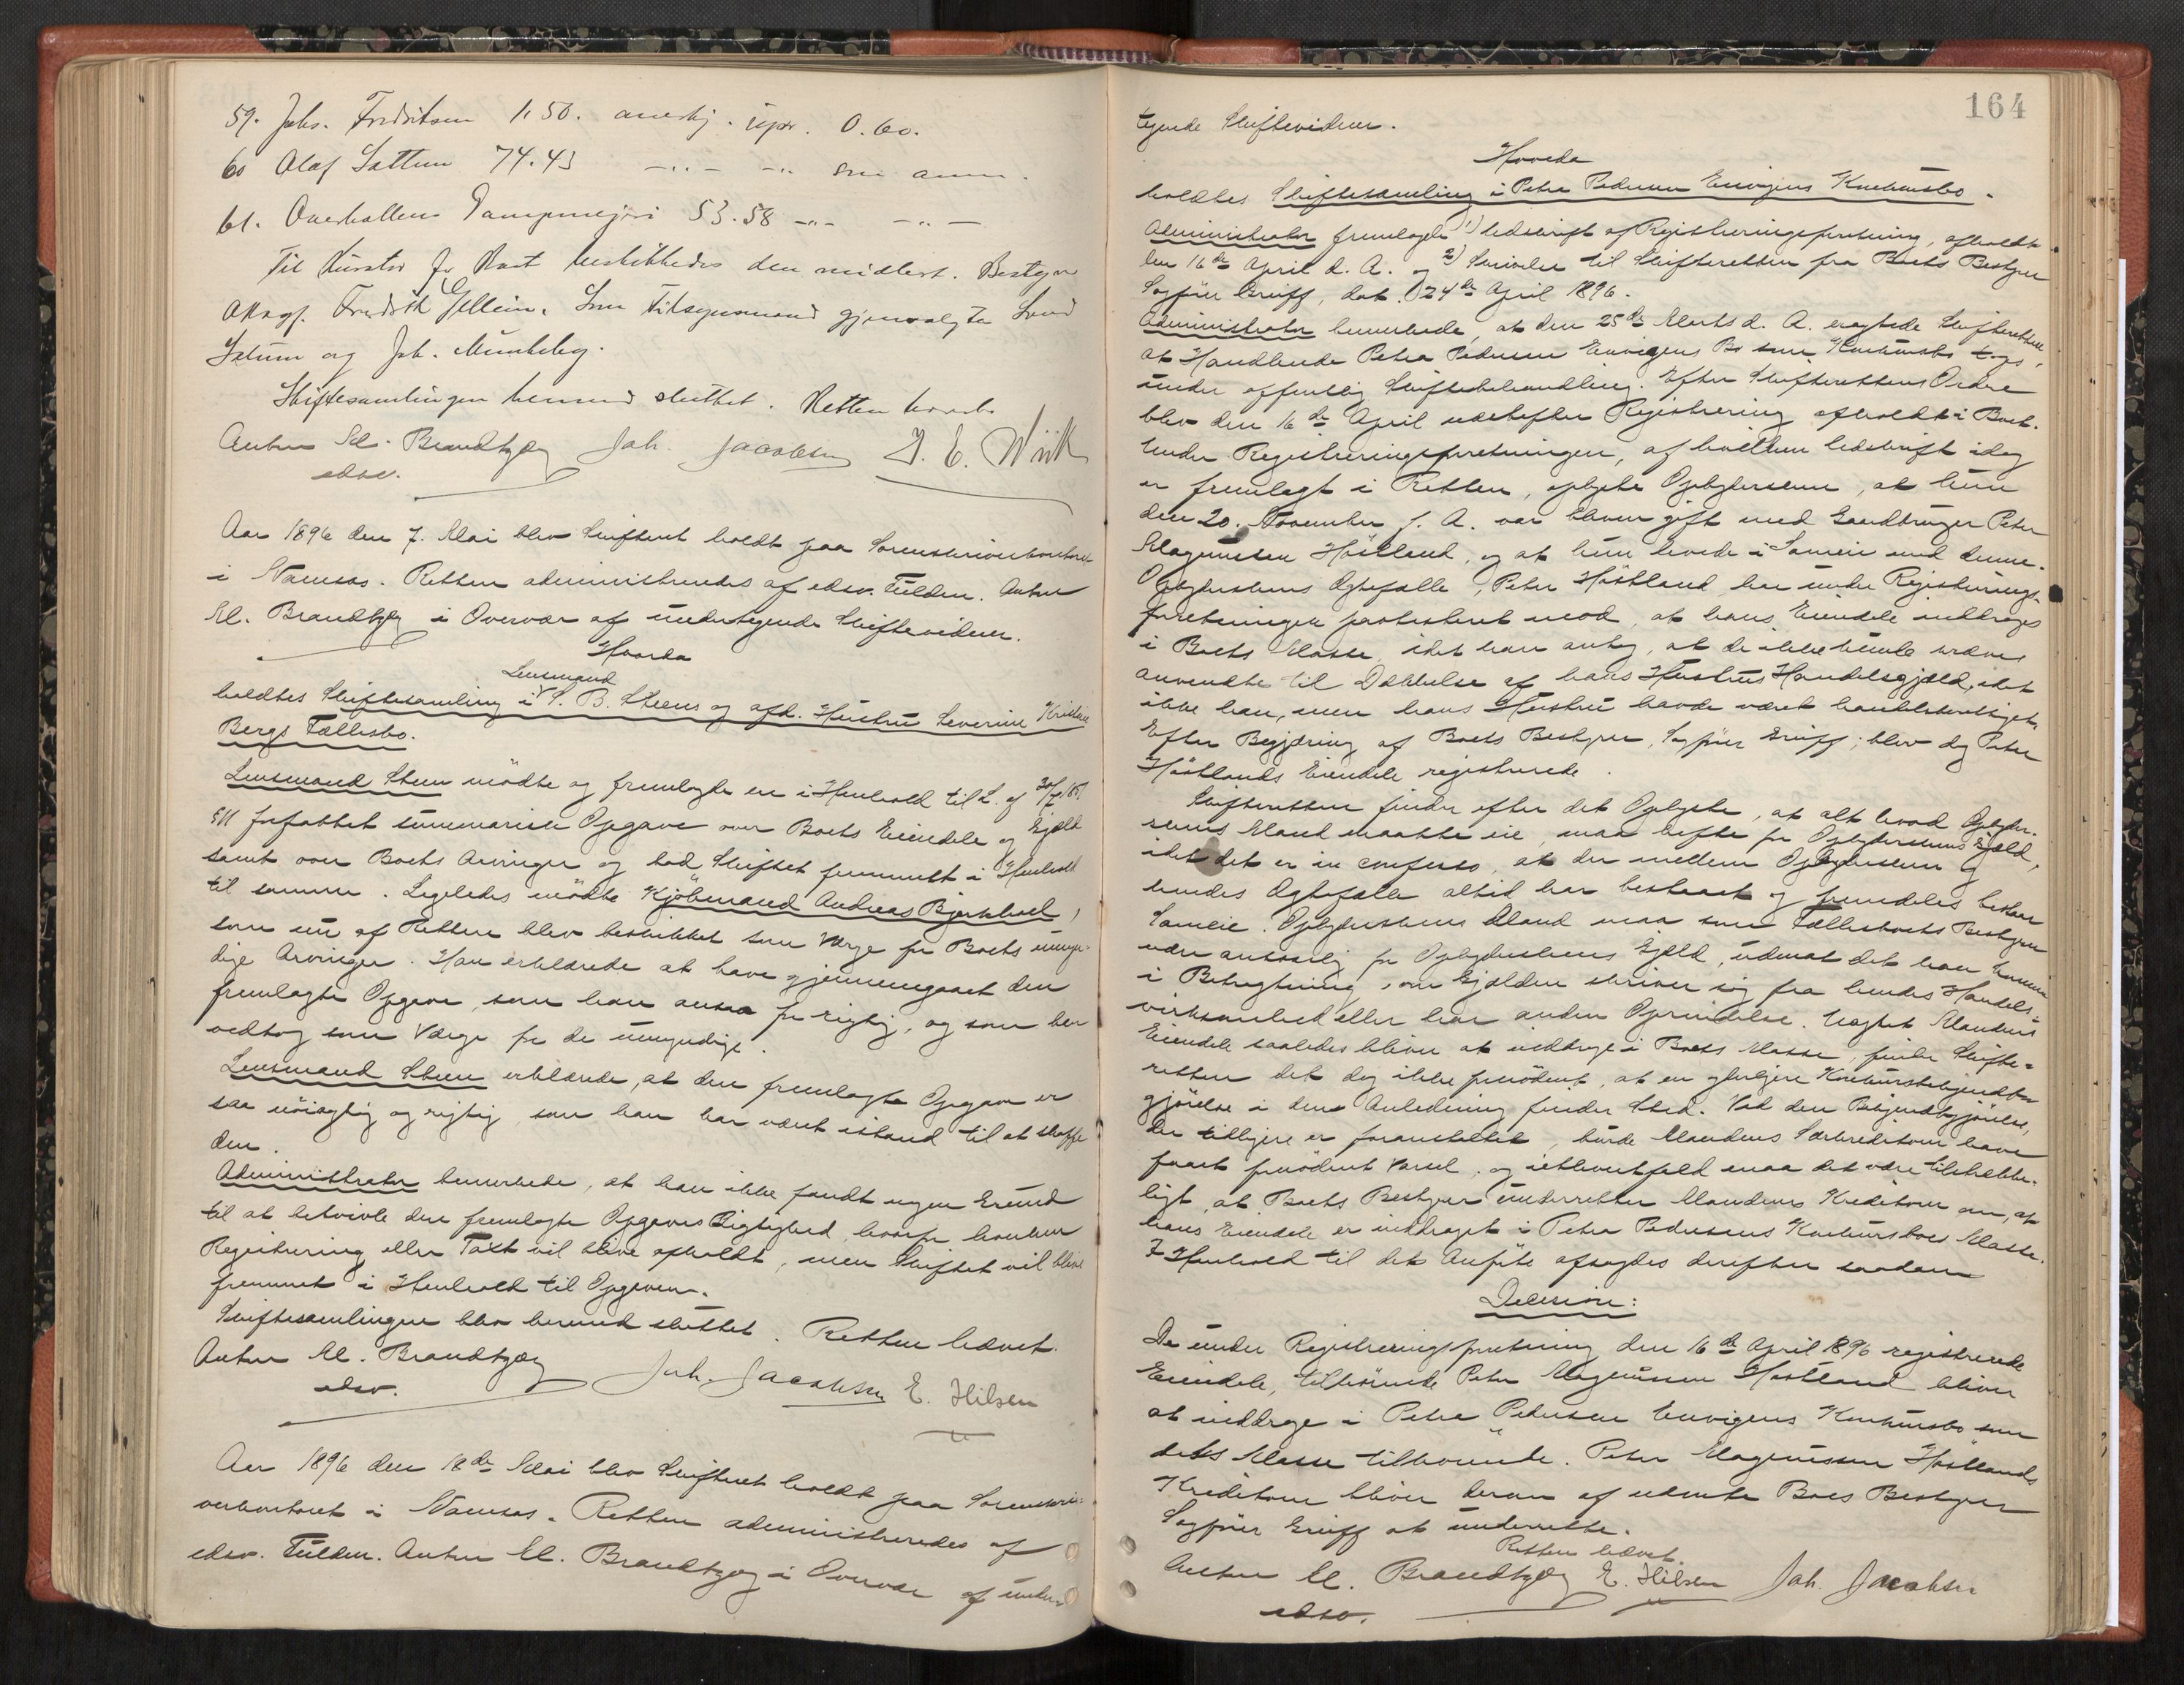 59. Johs. Fredriksen 1.50. anerkj. upr. 0.60.
60 Olaf Sattum 74.43 —"— —" som anm.
61. Overhallens Dampmejeri 53.58 —"— —"—
Til Kurator for Boet beskikkedes den midlert. Bestyrer
Fredrik Gllein. Som Tilsynsmænd gjenvalgtes
og Joh. Munkeby.
Skiftesamlingen hermed sluttet. Retten hævet.
Anton M. Brandtzæg Joh. Jacobsen J. E. Wiik
edsv.
Aar 1896 den 7. Mai blev Skifteret holdt paa Sorenskriverkontoret
i Namsos. Retten administreredes af edsv. Fuldm. Anton
M. Brandtzæg i Overvær af undertegnede Skiftevidner.
Hvorda
Lensmand
holdtes Skiftesamling i S. B. Steens og afd. Hustru Severine Kristine
Bergs Fællesbo.
Lensmand Steen mødte og fremlagde en i Henhold til L. af 30/7 1851
§11 forfattet summarisk Opgave over Boets Eiendele og Gjæld
samt over Boets Arvinger og bad Skiftet fremmet i Henhold
til samme. Ligeledes mødte Kjøbmand Andreas Bjørhovd,
som nu af Retten blev beskikket som Værge for Boets umyn-
dige Arvinger. Han erklærede at have gjennemgaaet den
fremlagte Opgave, som han ansaa for rigtig, og som han
vedtog som Værge for de umyndige.
Lensmand Steen erklærede, at den fremlagte Opgave er
saa nøiagtig og rigtig, som han har været istand til at skaffe
den.
Administrator bemærkede, at han ikke fandt nogen Grund
til at betvivle den fremlagte Opgaves Rigtighed, hvorfor hverken
Registrering eller Taxt vil blive afholdt, men Skiftet vil blive
fremmet i Henhold til Opgaven.
Skiftesamlingen blev hermed sluttet. Retten hævet.
Anton M. Brandtzæg Joh. Jacobsen E. Hilsen
edsv.
Aar 1896 den 18de Mai blev Skifteret holdt paa Sorenskri-
verkontoret i Namsos. Retten administreredes af
edsv. Fuldm. Anton M. Brandtzæg i Overvær af under-
164
tegnede Skiftevidner.
Hvorda
holdtes Skiftesamling i Petra Pedersen Envigens Konkursbo.
Administrator fremlagde 1) Udskrift af Registreringsforretning, afholdt
den 16de April d. A. og 2) Skrivelse til Skifteretten fra Boets Bestyrer
Sagfører Greiff, dat. 24de April 1896.
Administrator bemærkede, at den 25de Marts d. A. eragtede Skifteretten
at Handlende Petra Pedersen Envigens Bo som Konkursbo toges
under offentlig Skiftebehandling. Efter Skifterettens Ordre
blev den 16de April udehefter Registrering afholdt i Boet.
Under Registreringsforretningen, af hvilken Udskrift idag
er fremlagt i Retten, oplyste Opbydersken, at hun
den 20. November f. A. var bleven gift med Gaardbruger Peter
Magnussen Høstland, og at hun levede i Sameie med denne.
Opbyderskens Ægtefælle, Peter Høstland har under Registrerings-
forretningen protesteret mod, at hans Eiendele inddroges
i Boets Masse, idet han antog, at de ikke kunde kræves
anvendte til Dækkelse af hans Hustrus Handelsgjæld, idet
ikke han, men hans Hustru havde været handelsberettiget.
Efter Begjæring af Boets Bestyrer, Sagfører Greiff, blev dog Peter
Høstlands Eiendele registrerede.
Skifteretten finder efter det Oplyste, at alt hvad Opbyder-
skens Mand maatte eie, maa hefte for Opbyderskens Gjæld,
idet det er in confesso, at der mellem Opbydersken og
hendes Ægtefælle altid har bestaaet og fremdeles bestaar
Sameie. Opbyderskens Mand maa som Fællesboets Bestyrer
være ansvarlig for Opbyderskens Gjæld, udenat det kan komme
i Betragtning, om Gjælden skriver sig fra hendes Handels-
virksomhed eller har anden Oprindelse. Uagtet Mandens
Eiendele saaledes bliver at inddrage i Boets Masse, finder Skifte-
retten det dog ikke fornødent, at en yderligere Konkursbekjendt-
gjørelse i den Anledning finder Sted. Ved den Bekjendtgjørelse,
der tidligere er foranstaltet, burde Mandens Særkreditorer have
faaet fornødent Varsel, og ialtfald maa det være tilstrække-
ligt, at Boets Bestyrer underretter Mandens Kreditorer om, at
hans Eiendele er inddraget i Petra Pedersens Konkursboes Masse.
I Henhold til det Anførte afsagdes derefter saadan
Decision:
De under Registreringsforretning den 16de April 1896 registrerede
Eiendele, tilhørende Peter Magnussen Høstland bliver
at inddrage i Petra Pedersen Envigens Konkursbo som
dets Masse tilhørende. Peter Magnussen Høstlands
Kreditorer bliver derom af nævnte Boes Bestyrer
Sagfører Greiff at underrette.
Retten hævet.
Anton M. Brandtzæg E. Hilsen Joh. Jacobsen
edsv.